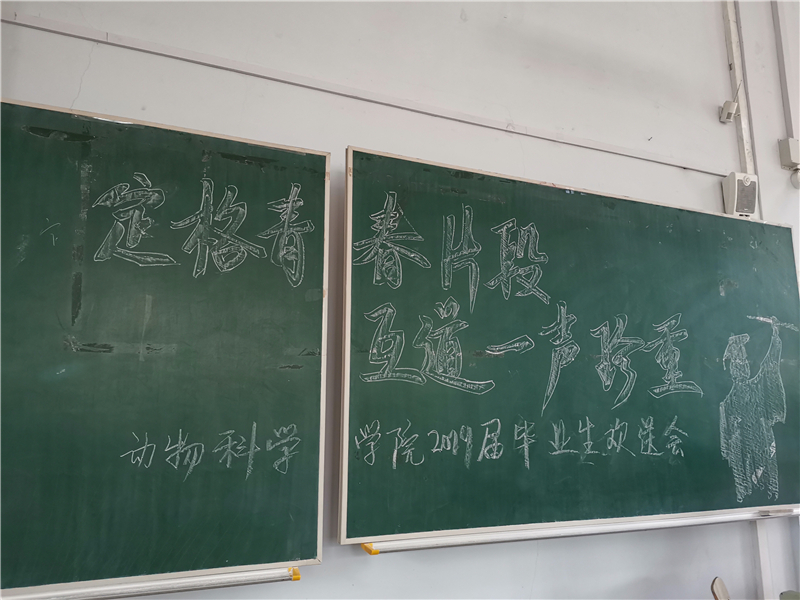 定格青春片段
互道一声珍重
动物科学学院2019届毕业生欢送会